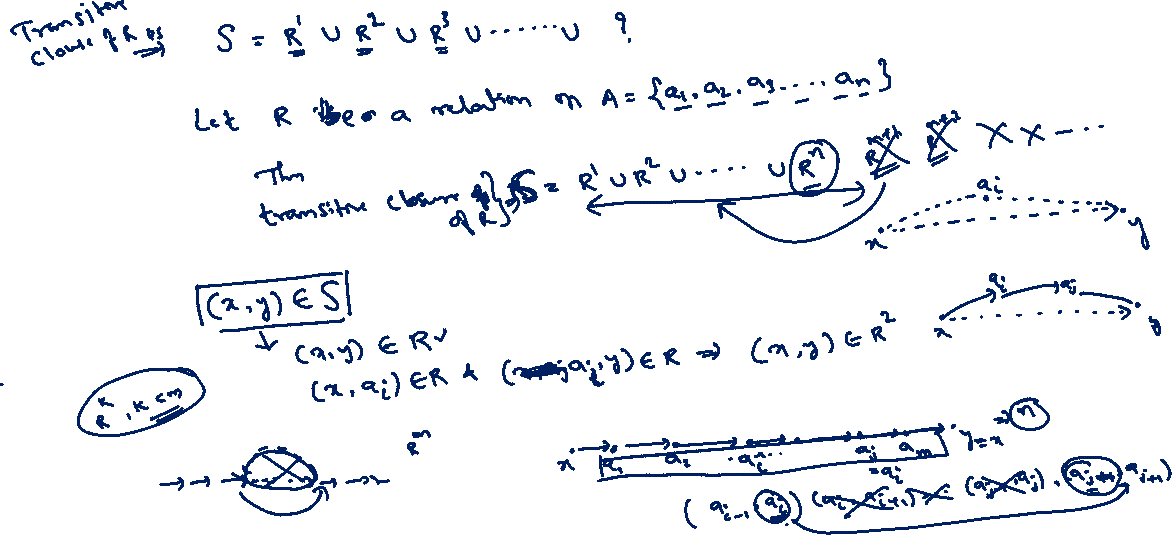 Transitive
Closure of R is ⇒ S = R¹ ∪ R² ∪ R³ ∪ ······ ∪ ?
Let R be a relation on A = {a₁, a₂, a₃ ..... aₙ}
Thn
transitive closure of R } S = R¹ ∪ R² ∪ ······ ∪ Rⁿ Rⁿ⁺¹ Rⁿ⁺² X X -···
x aᵢ y
(x,y) ∈ S
x aᵢ aⱼ y
(x,y) ∈ R ✓
(x, aᵢ) ∈ R & (aᵢ, y) ∈ R ⇒ (x,y) ∈ R²
Rᵏ, k ≤ m
Rᵐ
x a₁ a₂ aᵢ ·· aⱼ aₘ y = x ⇒ n
= aᵢ
(aᵢ₋₁ aᵢ) (aᵢ, aᵢ₊₁) (aⱼ, aⱼ), aⱼ₊₁)